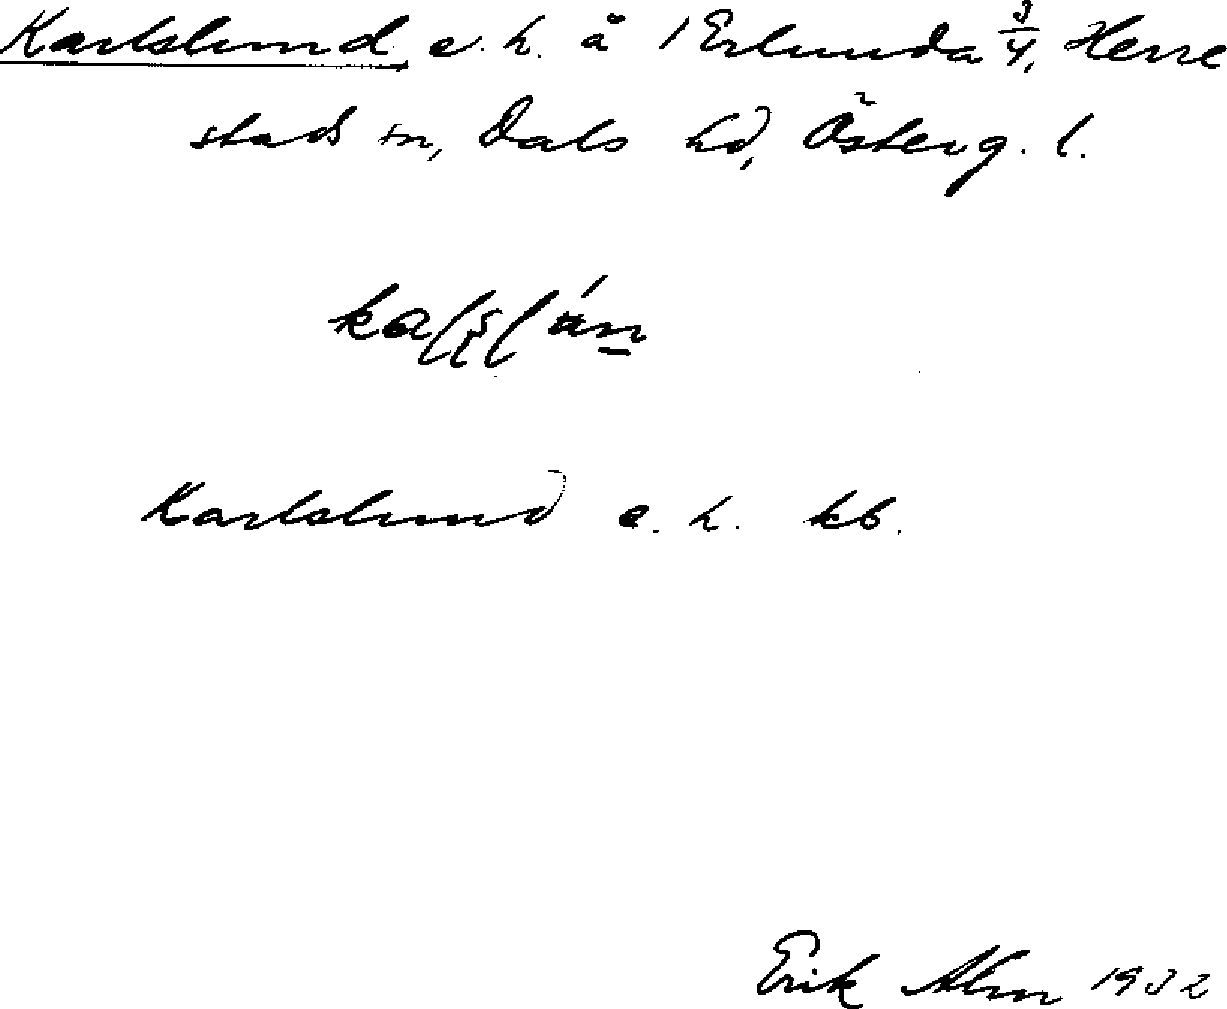 Karlslund e. h. å 1 Erlunda 3/4, Herre
stads sn, Dals hd, Österg. l.
Karlslund e. h. kb.
Erik Alm 1932